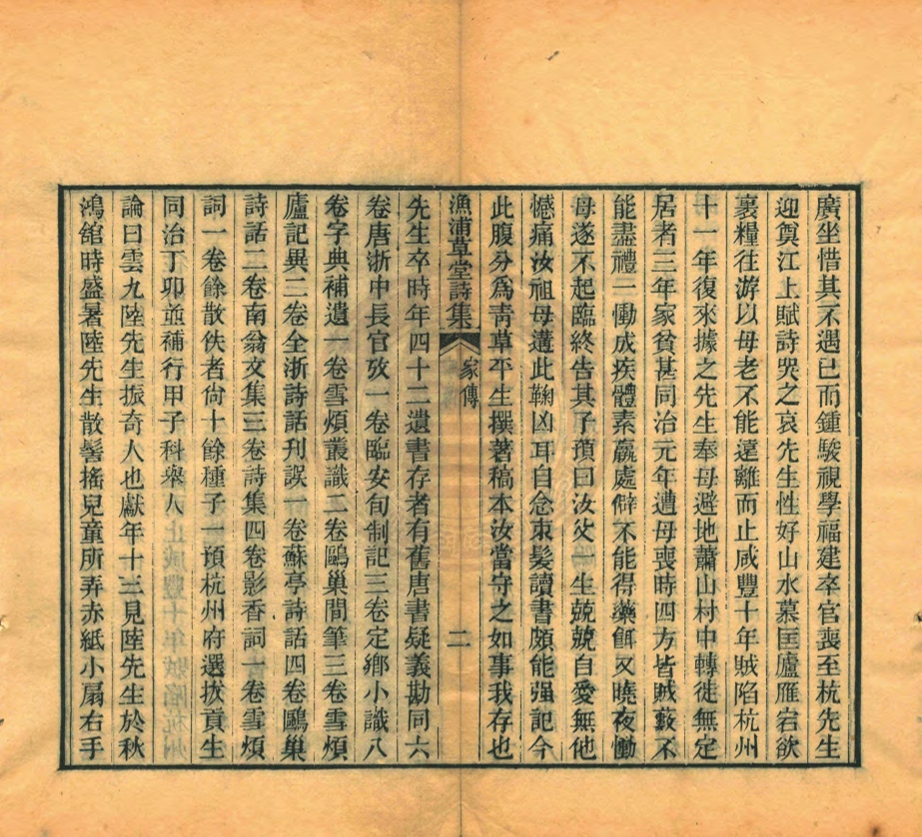 廣坐惜其不遇已而鍾駿視學福建卒官喪至杭先生
迎奠江上賦詩哭之哀先生性好山水慕匡廬雁宕欲
裹糧往游以母老不能遠離而止咸豐十年賊陷杭州
十一年復來據之先生奉母避地蕭山村中轉徙無定
居者三年家貧甚同治元年遭母喪時四方皆賊藪不
能盡禮一慟成疾體素羸處僻不能得藥餌又曉夜慟
母遂不起臨終告其子預曰汝父一生兢兢自愛無他
憾痛汝祖母遘此鞠凶耳自念束髮讀書頗能强記今
此腹分爲靑草平生撰著稿本汝當守之如事我存也
漁浦草堂詩集 家傳 二
先生卒時年四十二遺書存者有舊唐書疑義勘同六
卷唐浙中長官攷一卷臨安旬制記三卷定鄉小識八
卷字典補遺一卷雪煩叢識二卷鷗巢閒筆三卷雪煩
廬記異二卷全浙詩話刊誤一卷蘇亭詩話四卷鷗巢
詩話二卷南翁文集三卷詩集四卷影香詞一卷雪煩
詞一卷餘散佚者尙十餘種子一預杭州府選拔貢生
同治丁卯並補行甲子科舉人
論曰雲九陸先生振奇人也獻年十三見陸先生於秋
鴻舘時盛暑陸先生散髻搖兒童所弄赤紙小扇右手